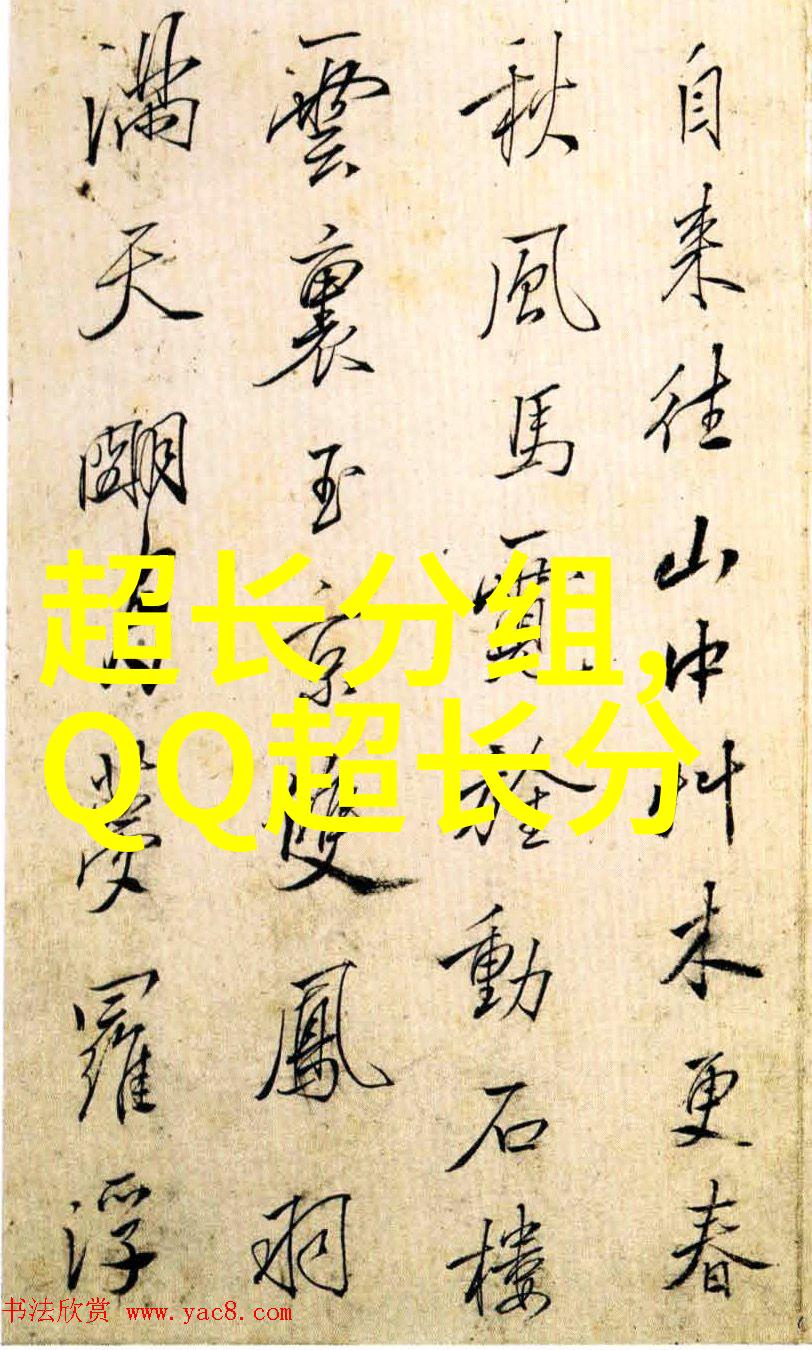 自来往山中艸木更春
秋風馬動石樓
雲裏玉京雙鳳羽
滿天夢羅浮
超长分组,
QQ超长分
书法欣赏 www.yac8.com